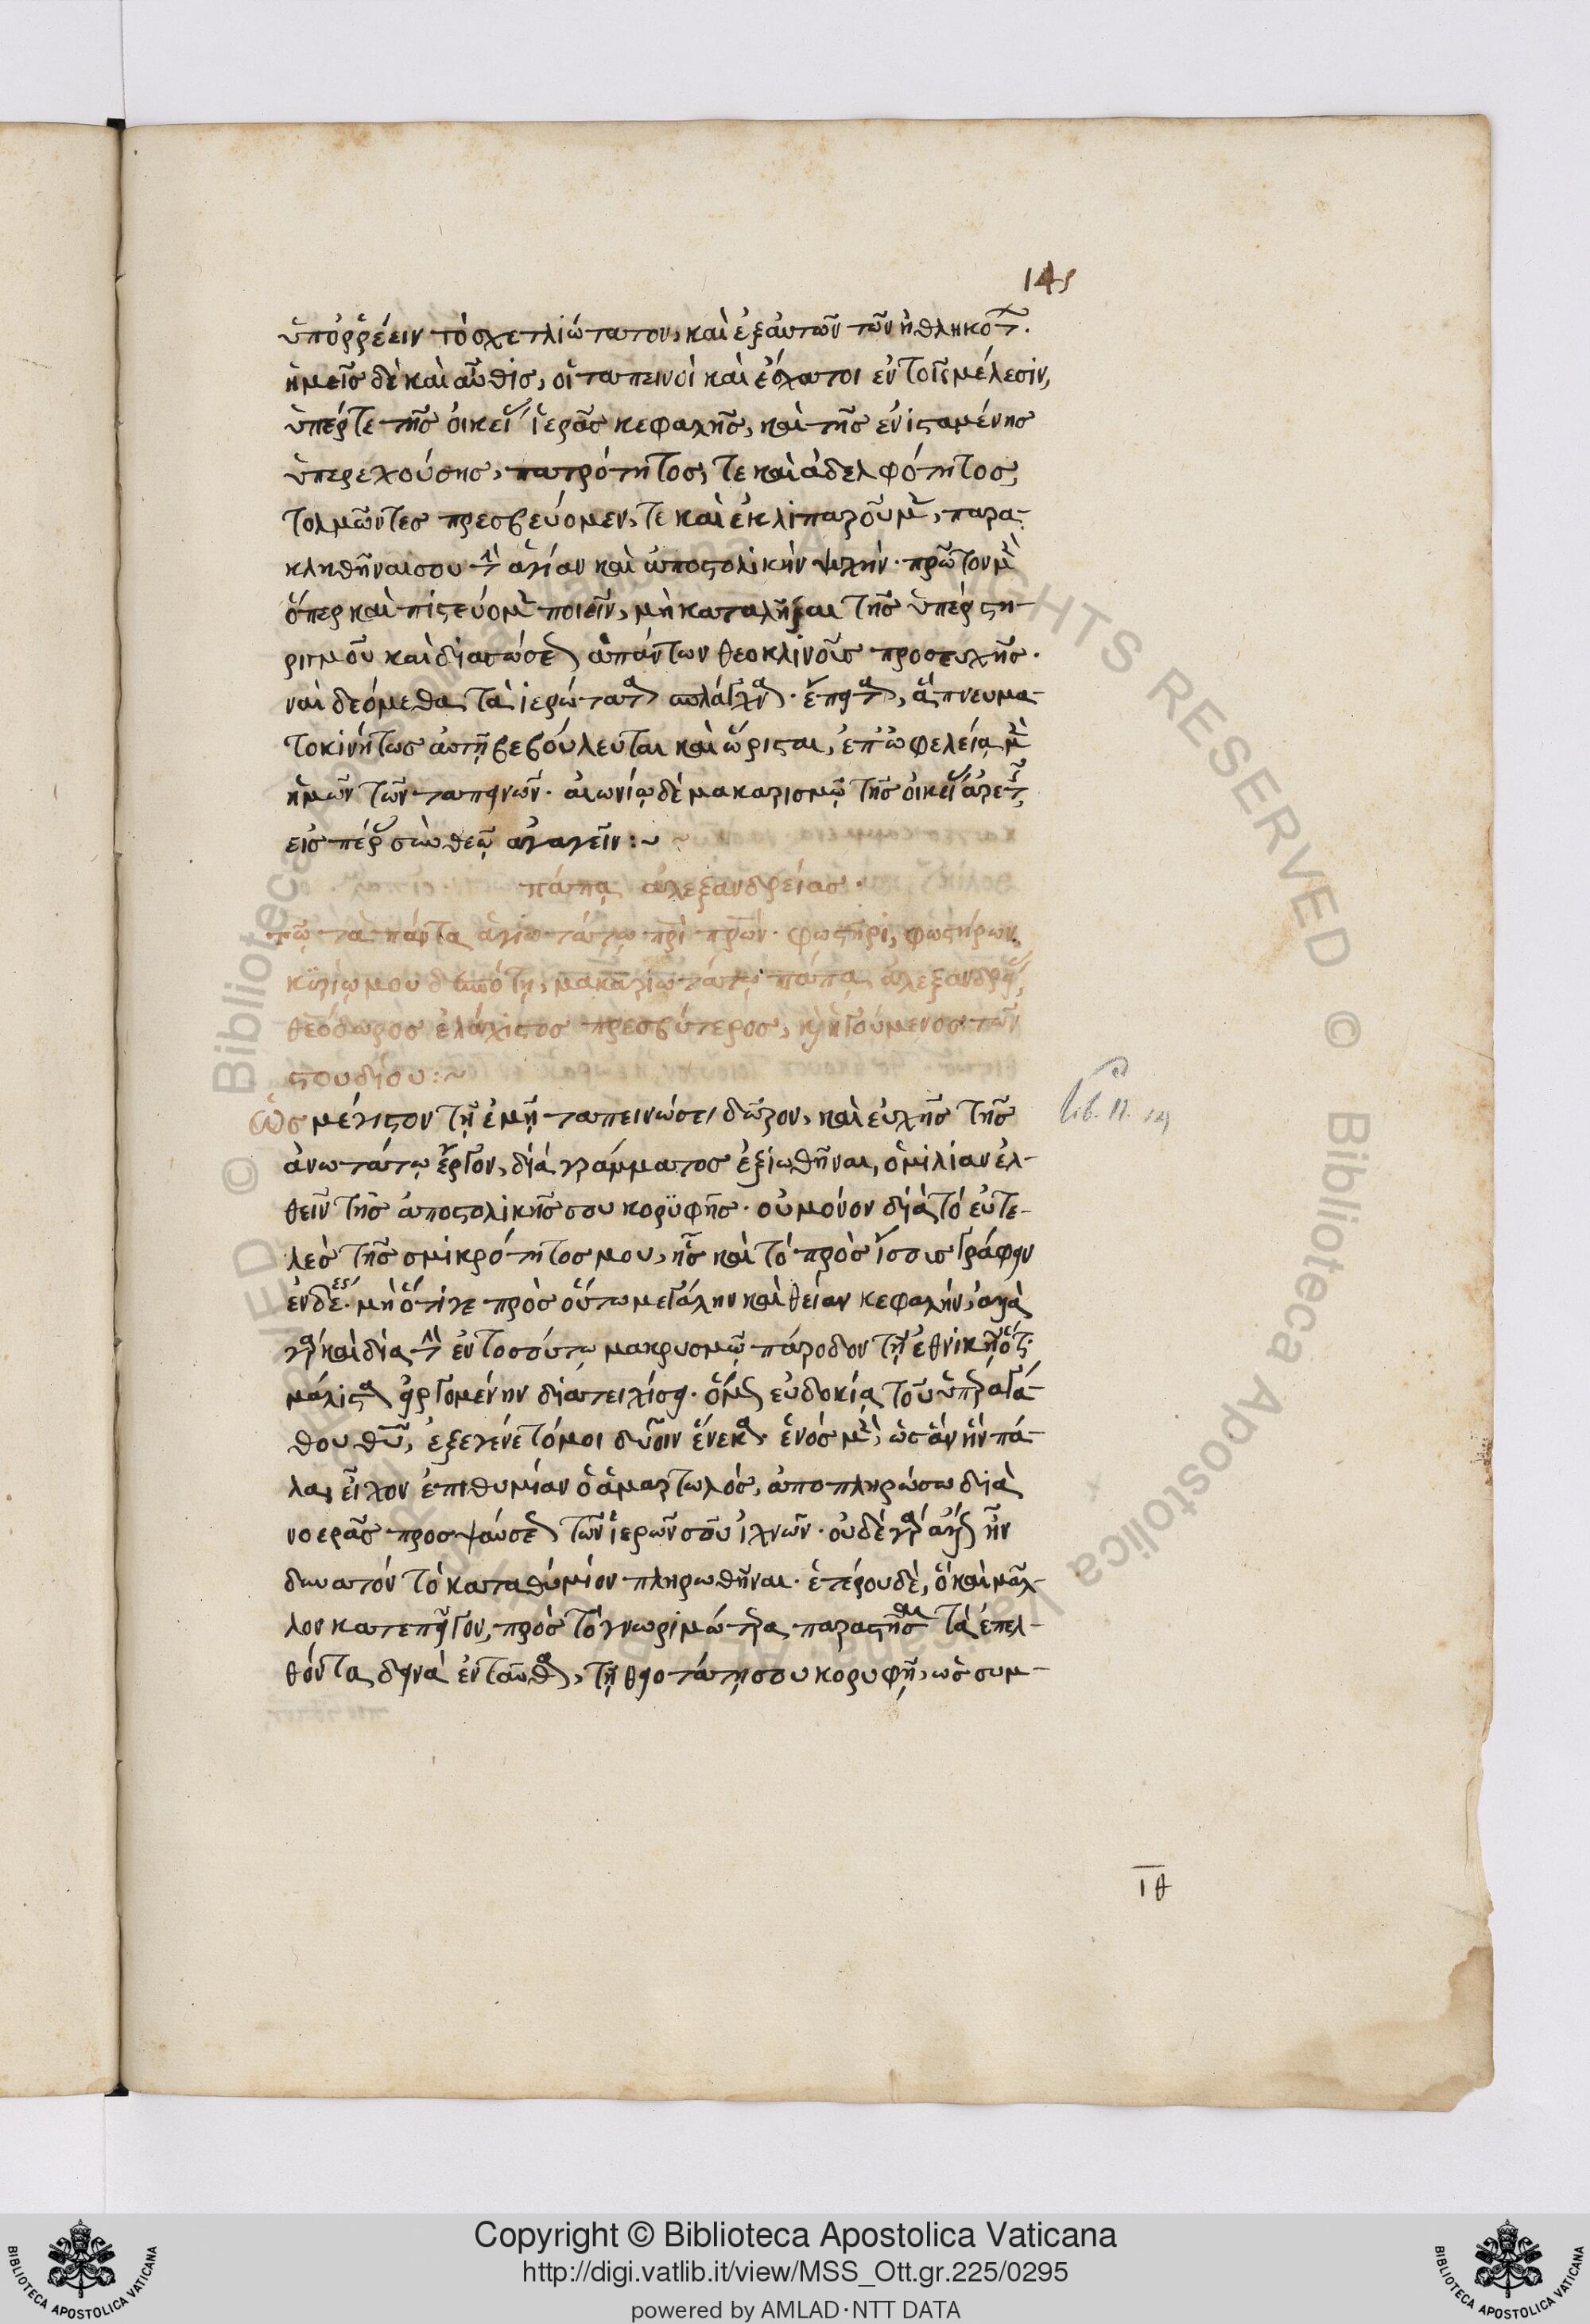 145
ὑπορρέειν τὸ σχετλιώτατον, καὶ ἐξ αὐτῶν τῶν ἠθληκότ.
ἡμεῖς δὲ καὶ αὖθις, οἱ ταπεινοὶ καὶ ἔσχατοι ἐν τοῖς μέλεσιν,
ὑπέρ τε τῆς οἰκεί ἱερᾶς κεφαλῆς, καὶ τῆς ἐνισταμένης
ὑπερεχούσης, πατρότητος, τε καὶ ἀδελφότητος,
τολμῶντες πρεσβεύομεν, τε καὶ ἐκλιπαροῦμ, παρα-
κληθῆναι σου τὴν ἁγίαν καὶ ἀποστολικὴν ψυχήν. πρῶτον μὲν
ὅπερ καὶ πιστεύομ ποιεῖν, μὴ καταλῆξαι τῆς ὑπὲρ στη-
ριγμοῦ καὶ διασώσε ἁπάντων θεοκλινοῦς προσευχῆς.
ναὶ δεόμεθα τὰ ἱερώτατα σπλάγχν. ἔπειτα, ἃ πνευμα-
τοκινήτως αὐτῇ βεβούλευται καὶ ὥρισται, ἐπ' ὠφελείᾳ μὲν
ἡμῶν τῶν ταπεινῶν. αἰωνίῳ δὲ μακαρισμῷ τῆς οἰκεί ἀρετῆς,
εἰς πέρ σὺν θεῷ ἀγαγεῖν:~
πάπᾳ ἀλεξανδρείας.
τῷ τὰ πάντα ἁγιωτάτῳ πρὶ πρῶν. φωστῆρι, φωστήρων,
κυρίῳ μου δεσπότῃ, μακαριωτάτῳ πάπᾳ ἀλεξανδρεί,
θεόδωρος ἐλάχιστος πρεσβύτερος, κ ἡγούμενος τῶν
στουδίου:~
Ὡς μέγιστον τῇ ἐμῇ ταπεινώσει δῶρον, καὶ εὐχῆς τῆς
ἀνωτάτω ἔργον, διὰ γράμματος ἐξιωθῆναι, ὁμιλίαν ἐλ-
θεῖν τῆς ἀποστολικῆς σου κορυφῆς. οὐ μόνον διὰ τὸ εὐτε-
λὲς τῆς σμικρότητός μου, ἧς καὶ τὸ πρὸς ἴσους γράφειν
ἐνδεές. μὴ ὅτι γε πρὸς οὕτω μεγάλην καὶ θείαν κεφαλήν, ἀλλὰ
γὰρ καὶ διὰ τὴν ἐν τοσούτῳ μακρυσμῷ πάροδον τῇ ἐθνικῇ ότ.
μάλιστα εἰργομένην διατειχίσει. ὅμ εὐδοκίᾳ τοῦ ὑπεραγά-
θου θῦ, ἐξεγένετό μοι δυοῖν ἕνεκα. ἑνὸς μὲν, ὡς ἂν ἣν πά-
λαι εἶχον ἐπιθυμίαν ὁ ἁμαρτωλός, ἀποπληρώσω διὰ
νοερᾶς προσψαύσε τῶν ἱερῶν σου ἰχνῶν. οὐδὲ γὰρ ἄλλ ἦν
δυνατὸν τὸ καταθύμιον πληρωθῆναι. ἑτέρου δὲ, ὃ καὶ μᾶλ-
λον κατεπεῖγον, πρὸς τὸ γνωριμώτερα παραστῆσαι τὰ ἐπελ-
θόντα δεινὰ ἐνταῦθα, τῇ θειοτάτῃ σου κορυφῇ, ὡς συμ-
lib. II. 14
ιθ
Copyright © Biblioteca Apostolica Vaticana
http://digi.vatlib.it/view/MSS_Ott.gr.225/0295
powered by AMLAD·NTT DATA
BIBLIOTECA APOSTOLICA VATICANA
BIBLIOTECA APOSTOLICA VATICANA